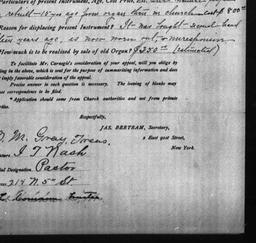 Particulars of present Instrument, Age, Cost Price, etc.
rebuilt - 15 yrs ago
Reason for displacing present Instrument? It was bought second hand
years ago, is now worn out, &
How much is to be realised by sale of old Organ? $250 00 (estimated)
To facilitate Mr. Carnegie's consideration of your appeal, will you oblige by
ing in the above, which is used for the purpose of summarizing information and does
imply favorable consideration of the appeal.
Precise answer to each question is necessary. The leaving of blanks may
not correspondence.
* Application should come from Church authorities and not from private
rties.
Respectfully,
JAS. BERTRAM, Secretary,
2 East 91st Street,
New York.
D. M. Gray, Treas.
ature J T Nash
ial Designation Pastor
214 N. 5th St